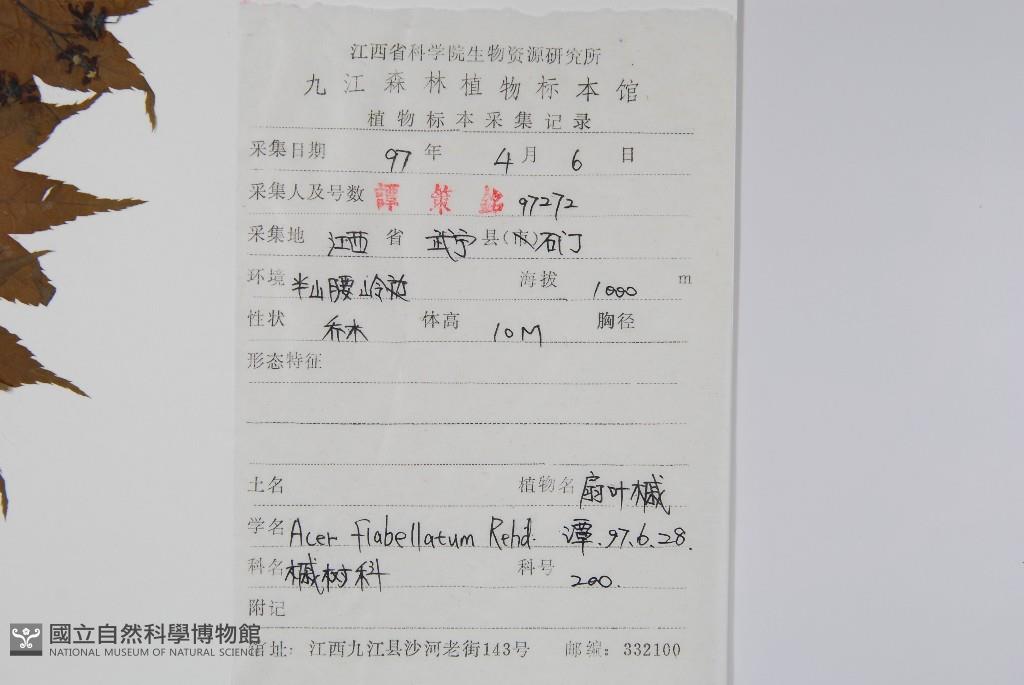 江西省科学院生物资源研究所
九江森林植物标本馆
植物标本采集记录
采集日期 97 年 4 月 6 日
采集人及号数 譚策銘 97272
采集地 江西 省 武宁 县(市)石门
环境 半山腰山伶 海拔 1000 m
性状 乔木 体高 10M 胸径
形态特征
土名 植物名 扇叶槭
学名 Acer flabellatum Rehd. 潭.97.6.28.
科名 槭树科 科号 200.
附记
馆址: 江西九江县沙河老街143号 邮编: 332100
國立自然科學博物館
NATIONAL MUSEUM OF NATURAL SCIENCE